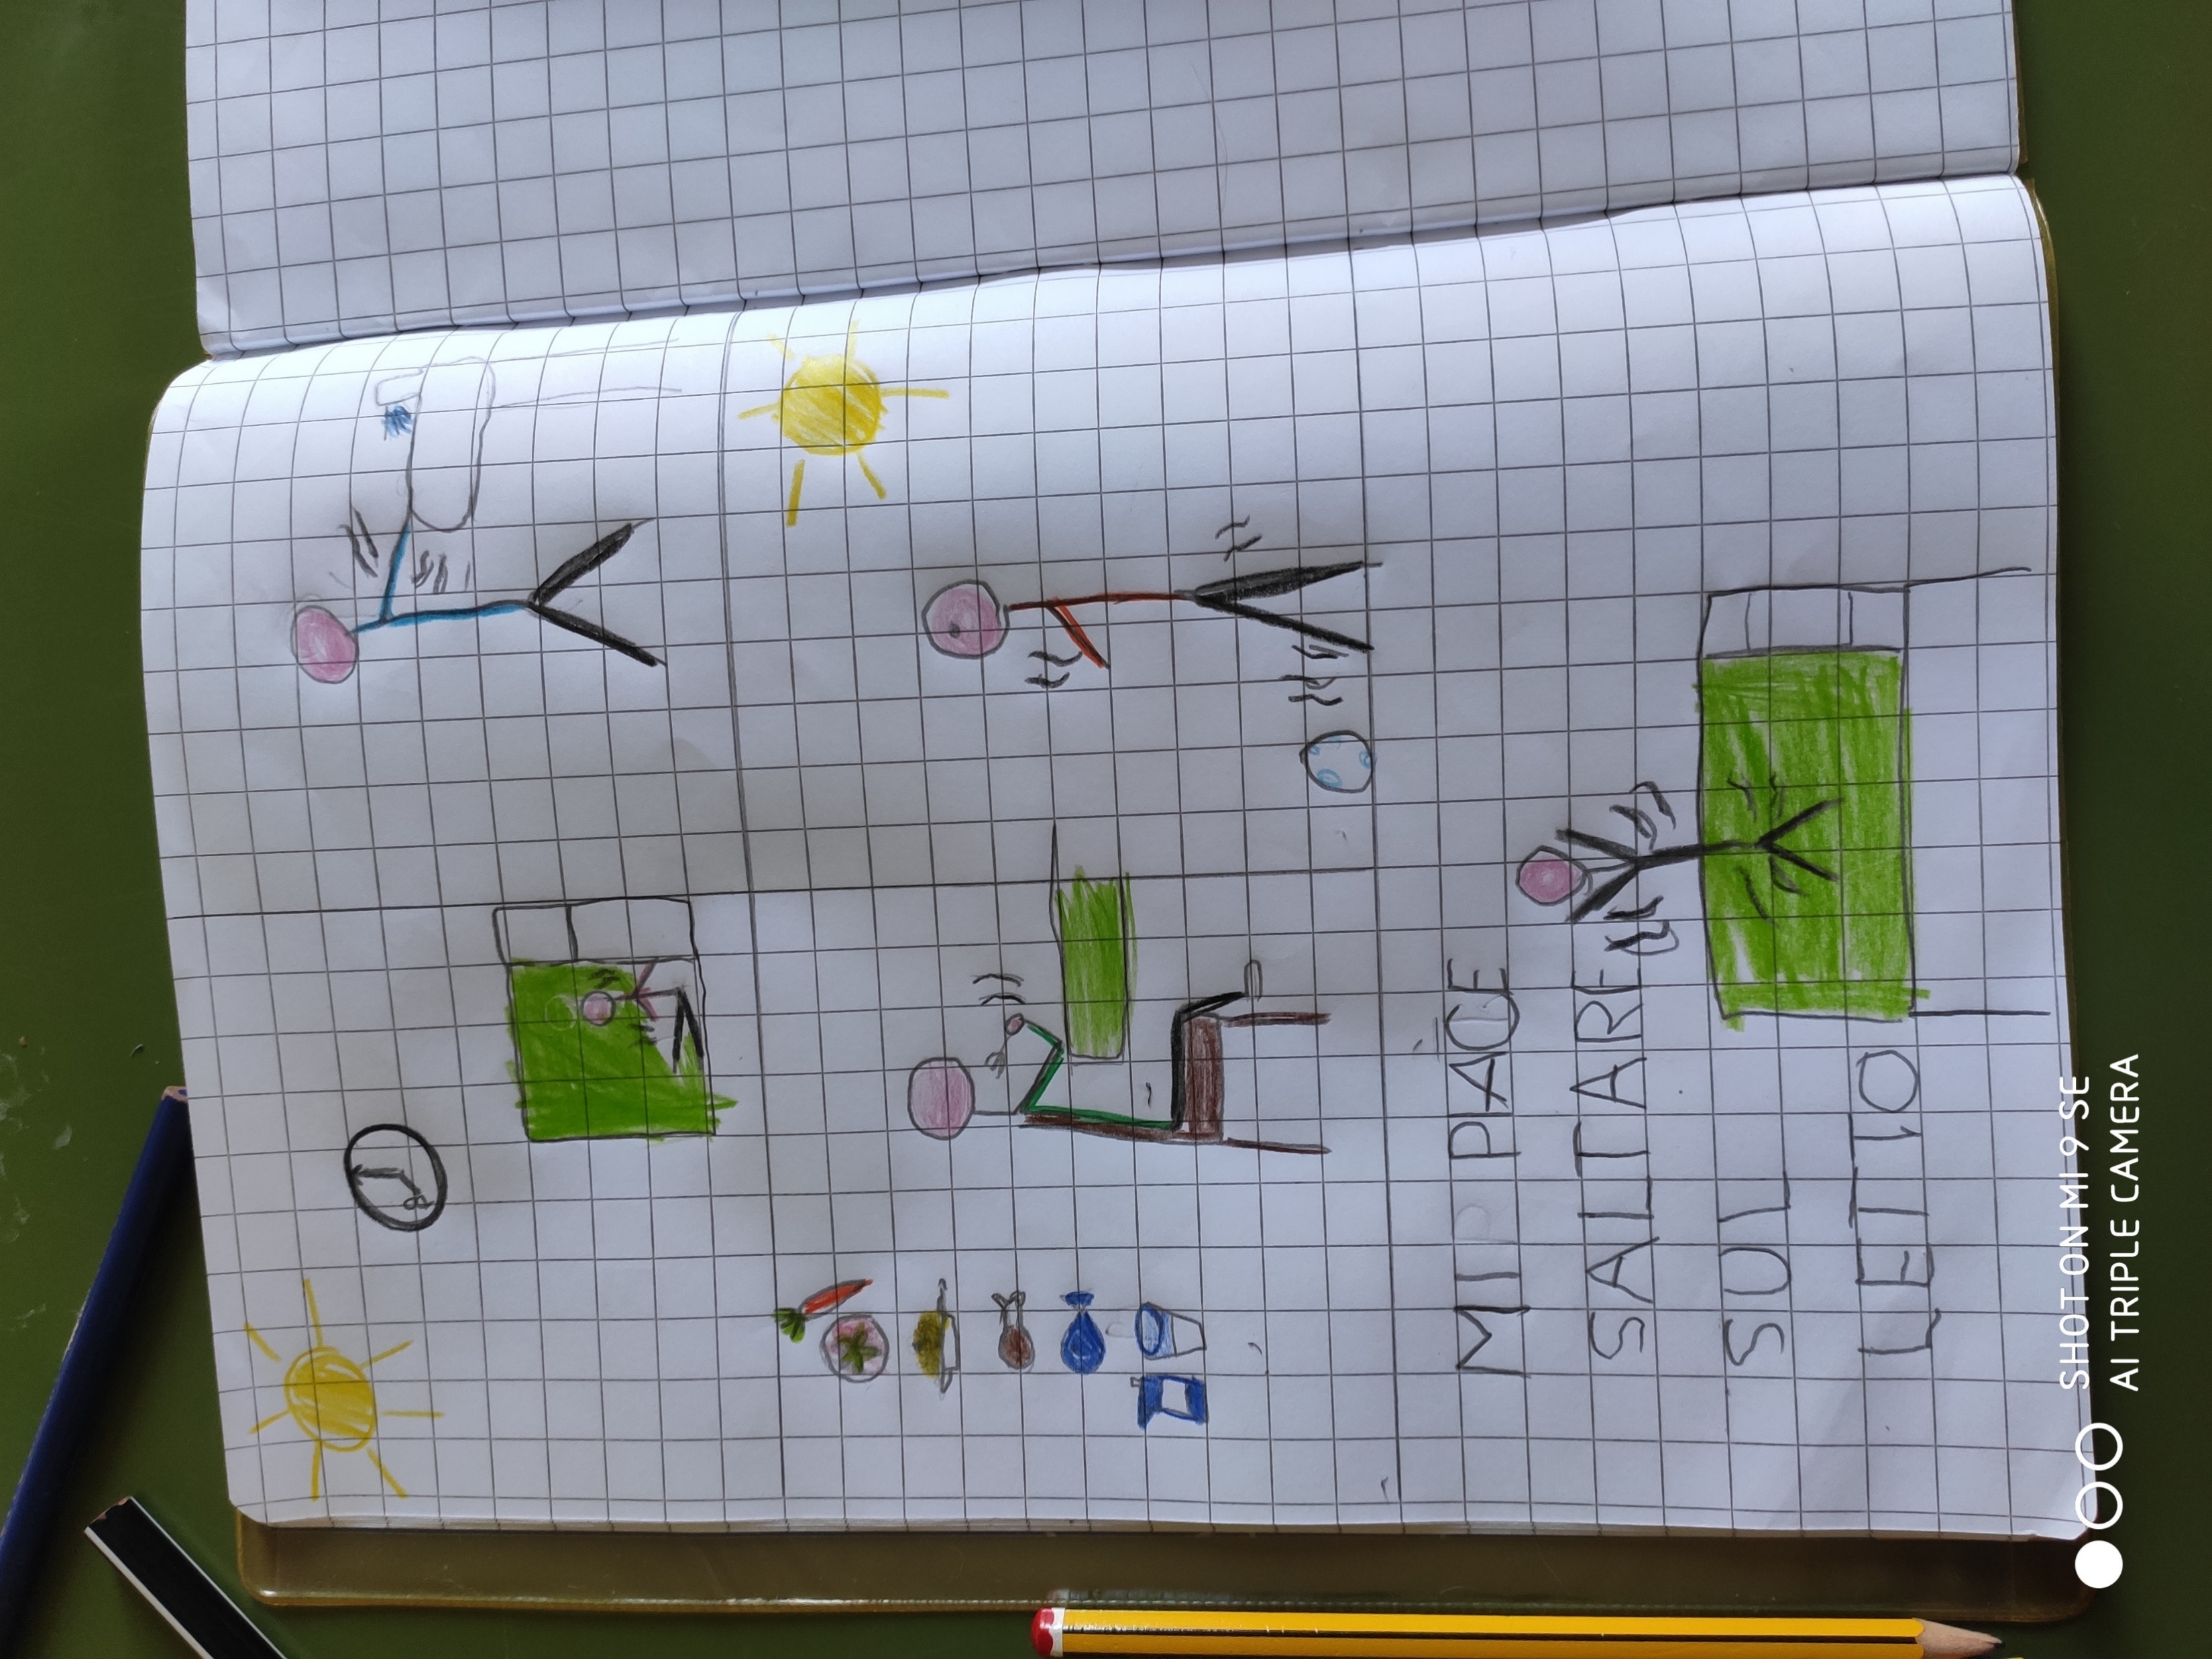 MI PIACE
SALTARE
SUL
LETTO
SHOT ON MI 9 SE
AI TRIPLE CAMERA